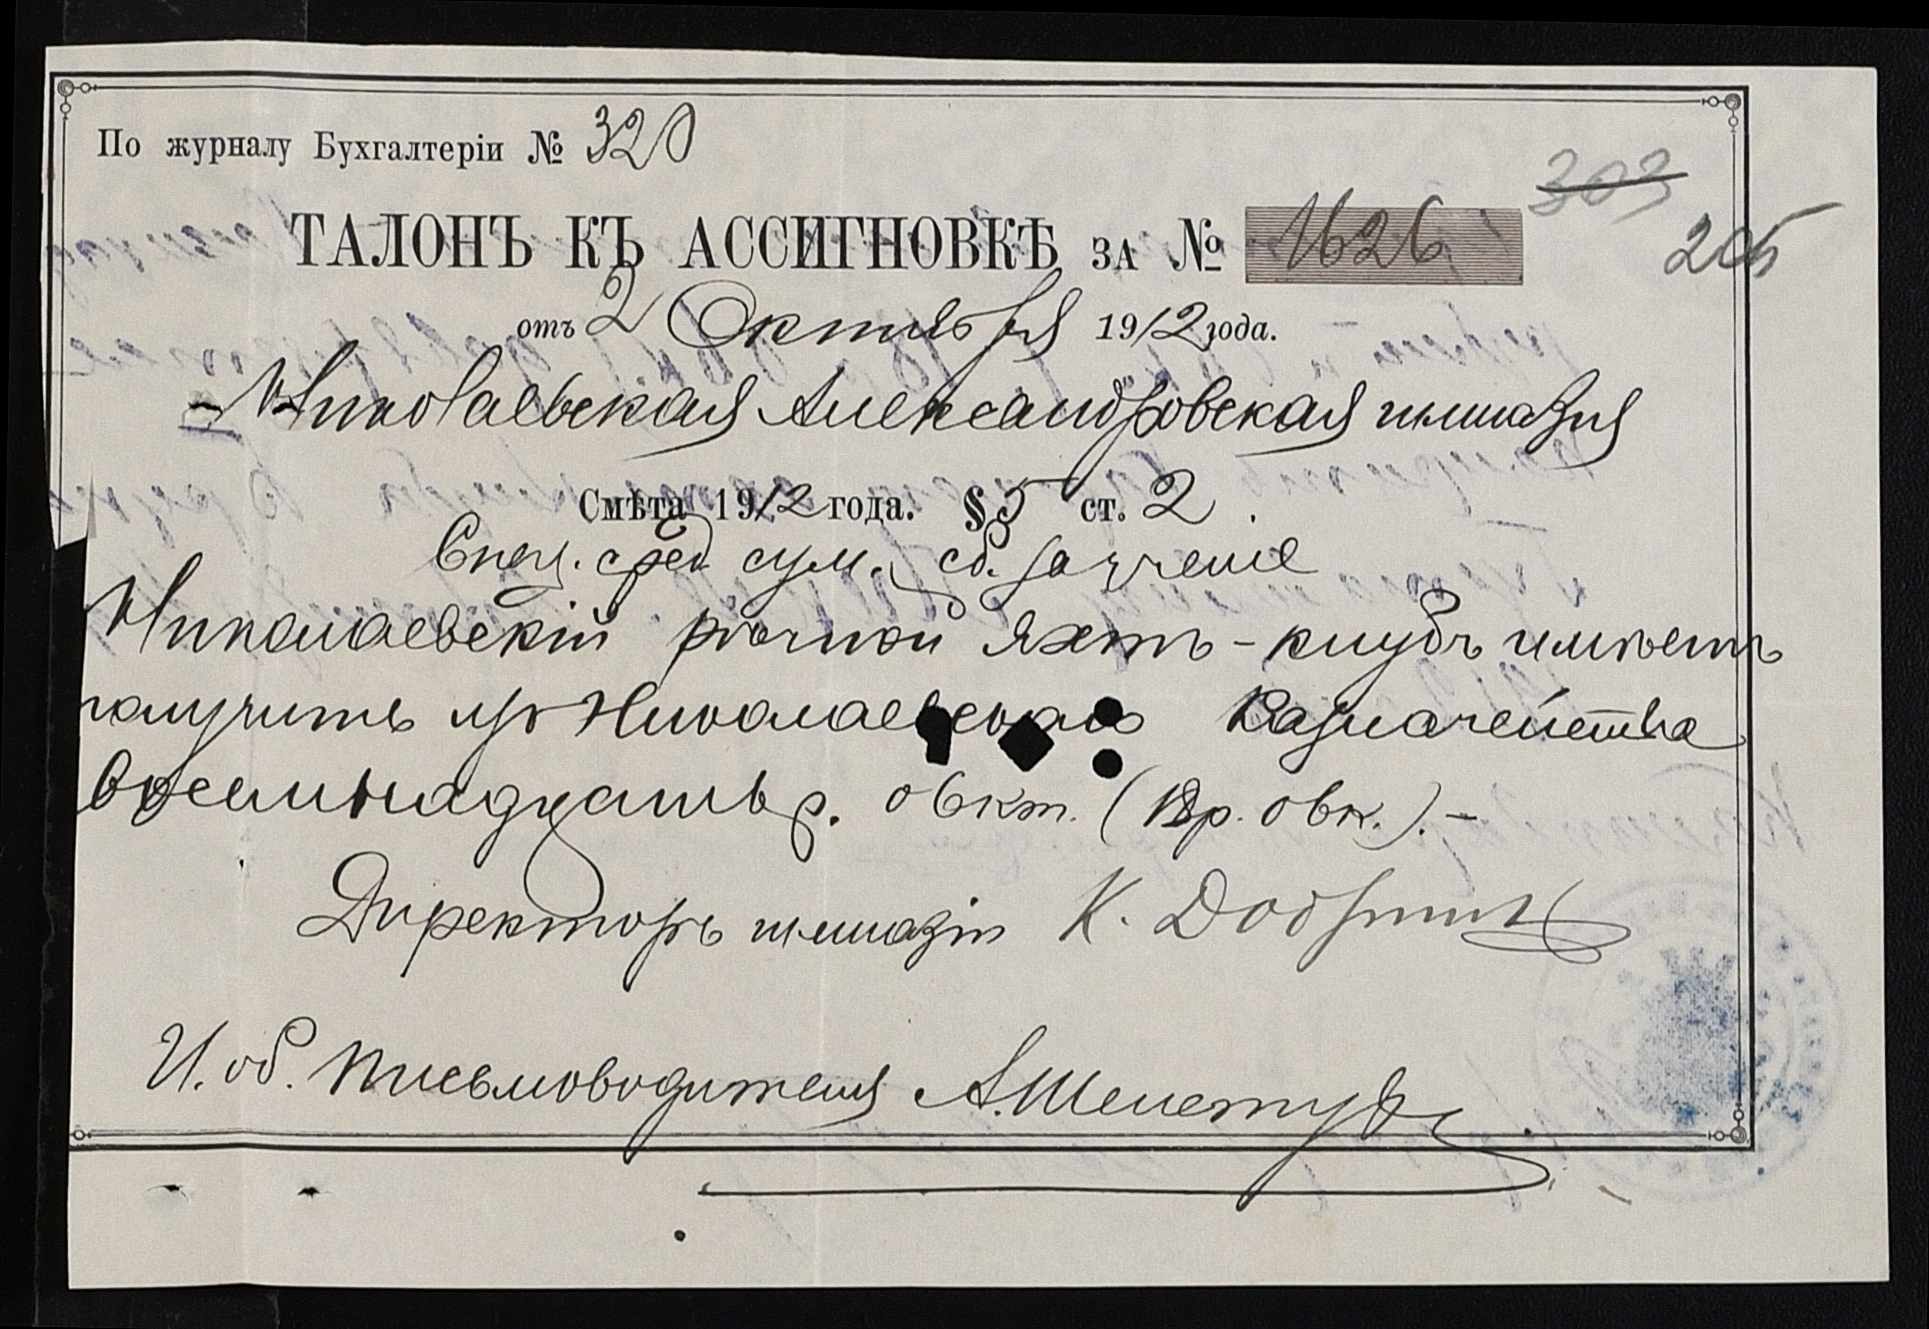 По журналу Бухгалтеріи № 320
303
ТАЛОНЪ КЪ АССИГНОВКѢ ЗА № 1626
205
отъ 2 Октября 1912 года.
Николаевская Александровская гимназія
Смѣта 1912 года. § 5 ст. 2
Спец. сред. сум. сб. за ученіе
Николаевскій рѣчной яхтъ-клубъ имѣетъ
получить изъ Николаевскаго Казначейства
восемнадцать р. 06 кт. (18 р. 06 к.).-
Директоръ гимназіи К.
И. об. письмоводителя А.